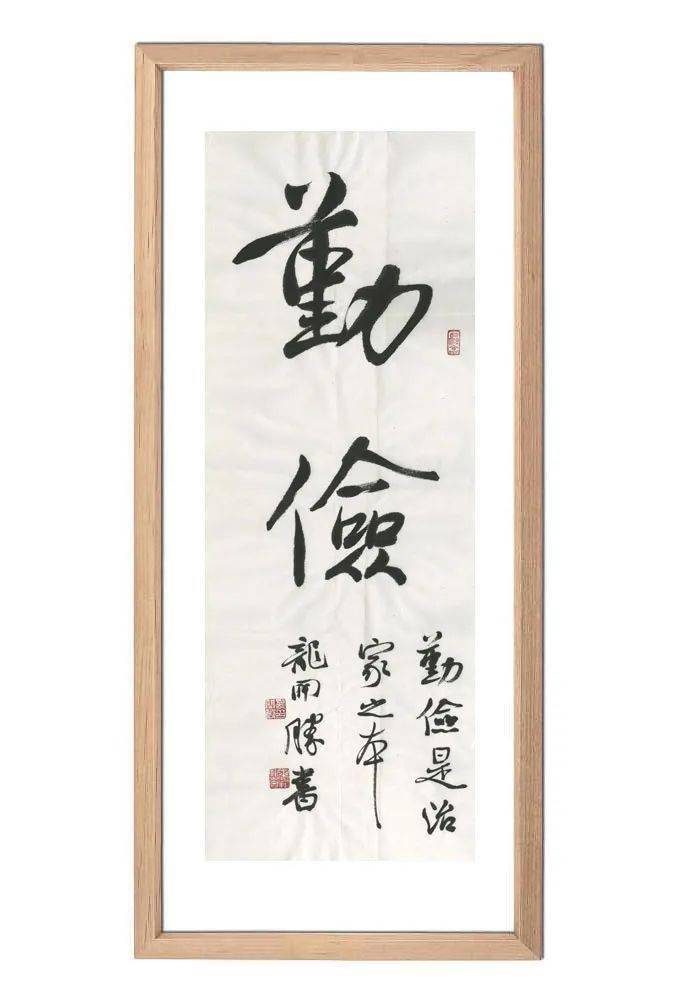 勤儉
勤儉是治
家之本
龍開勝書